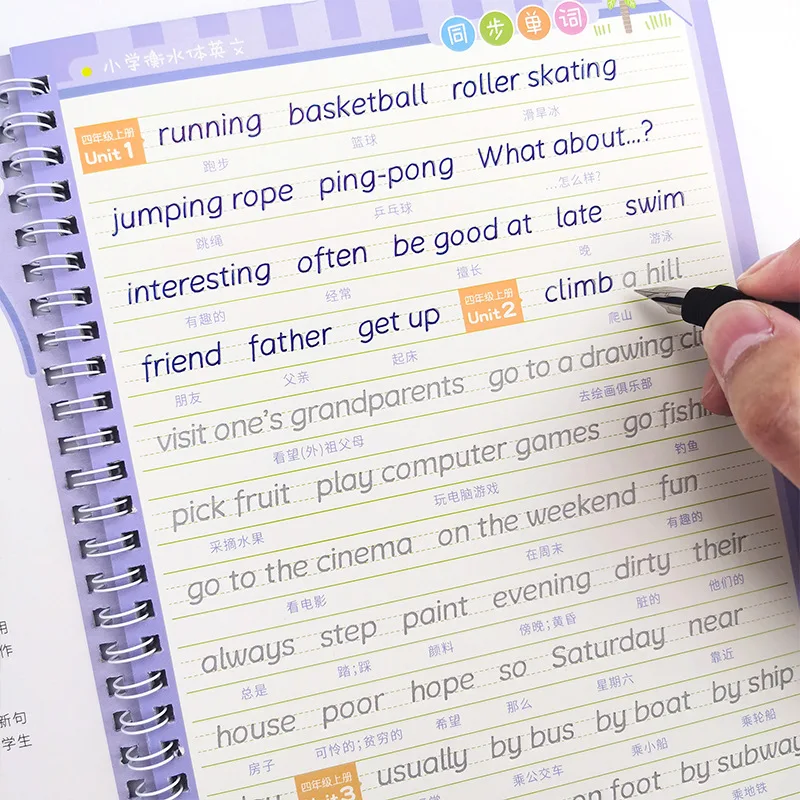 小学衡水体英文 同步单词
四年级上册 Unit 1 running basketball roller skating
跑步 篮球 滑旱冰
jumping rope ping-pong What about...?
跳绳 乒乓球 ...怎么样?
interesting often be good at late swim
有趣的 经常 擅长 晚 游泳
friend father get up 四年级上册 Unit 2 climb a hill
朋友 父亲 起床 爬山
visit one's grandparents go to a drawing
看望(外)祖父母 去绘画俱乐部
pick fruit play computer games go
采摘水果 玩电脑游戏 钓鱼
go to the cinema on the weekend fun
看电影 在周末 有趣的
always step paint evening dirty their
总是 踏;踩 颜料 傍晚;黄昏 脏的 他们的
house poor hope so Saturday near
房子 可怜的;贫穷的 希望 那么 星期六 靠近
四年级上册 Unit 3 usually by bus by boat by ship
乘公交车 乘小船 乘轮船
on foot by subway
乘地铁
用
作
新句
学生